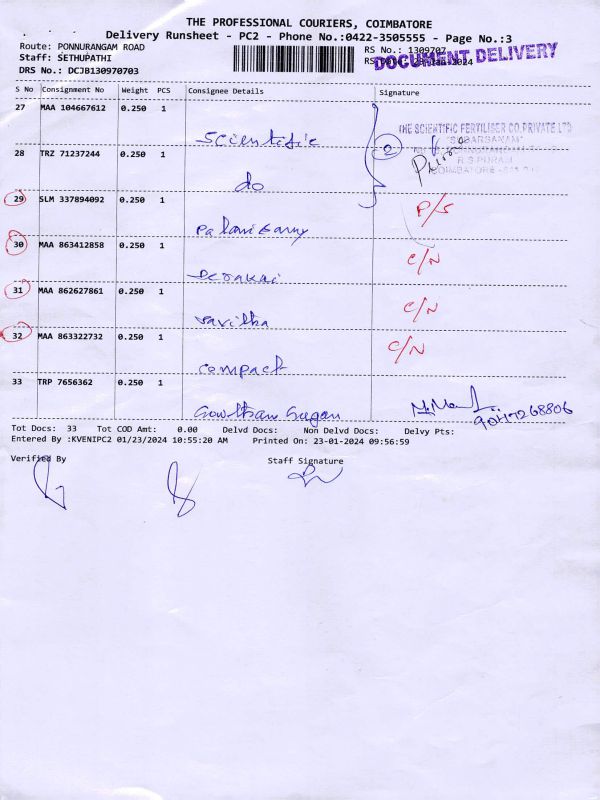 THE PROFESSIONAL COURIERS, COIMBATORE
Delivery Runsheet - PC2 - Phone No.:0422-3505555 - Page No.:3
Route: PONNURANGAM ROAD
Staff: SETHUPATHI
DRS No.: DCJB130970703
RS No.: 1309707
DOCUMENT DELIVERY
S No Consignment No Weight PCS Consignee Details Signature
27 MAA 104667612 0.250 1
Scientific
THE SCIENTIFIC FERTILISER CO.PRIVATE LTD
2
R.S PURAM
COIMBATORE
28 TRZ 71237244 0.250 1
do
29 SLM 337894092 0.250 1 P/S
Palanisamy
30 MAA 863412858 0.250 1 C/N
31 MAA 862627861 0.250 1 C/N
Savitha
32 MAA 863322732 0.250 1 C/N
Compact
33 TRP 7656362 0.250 1
Tot Docs: 33 Tot COD Amt: 0.00 Delvd Docs: Non Delvd Docs: Delvy Pts:
Entered By :KVENIPC2 01/23/2024 10:55:20 AM Printed On: 23-01-2024 09:56:59
Verified By Staff Signature